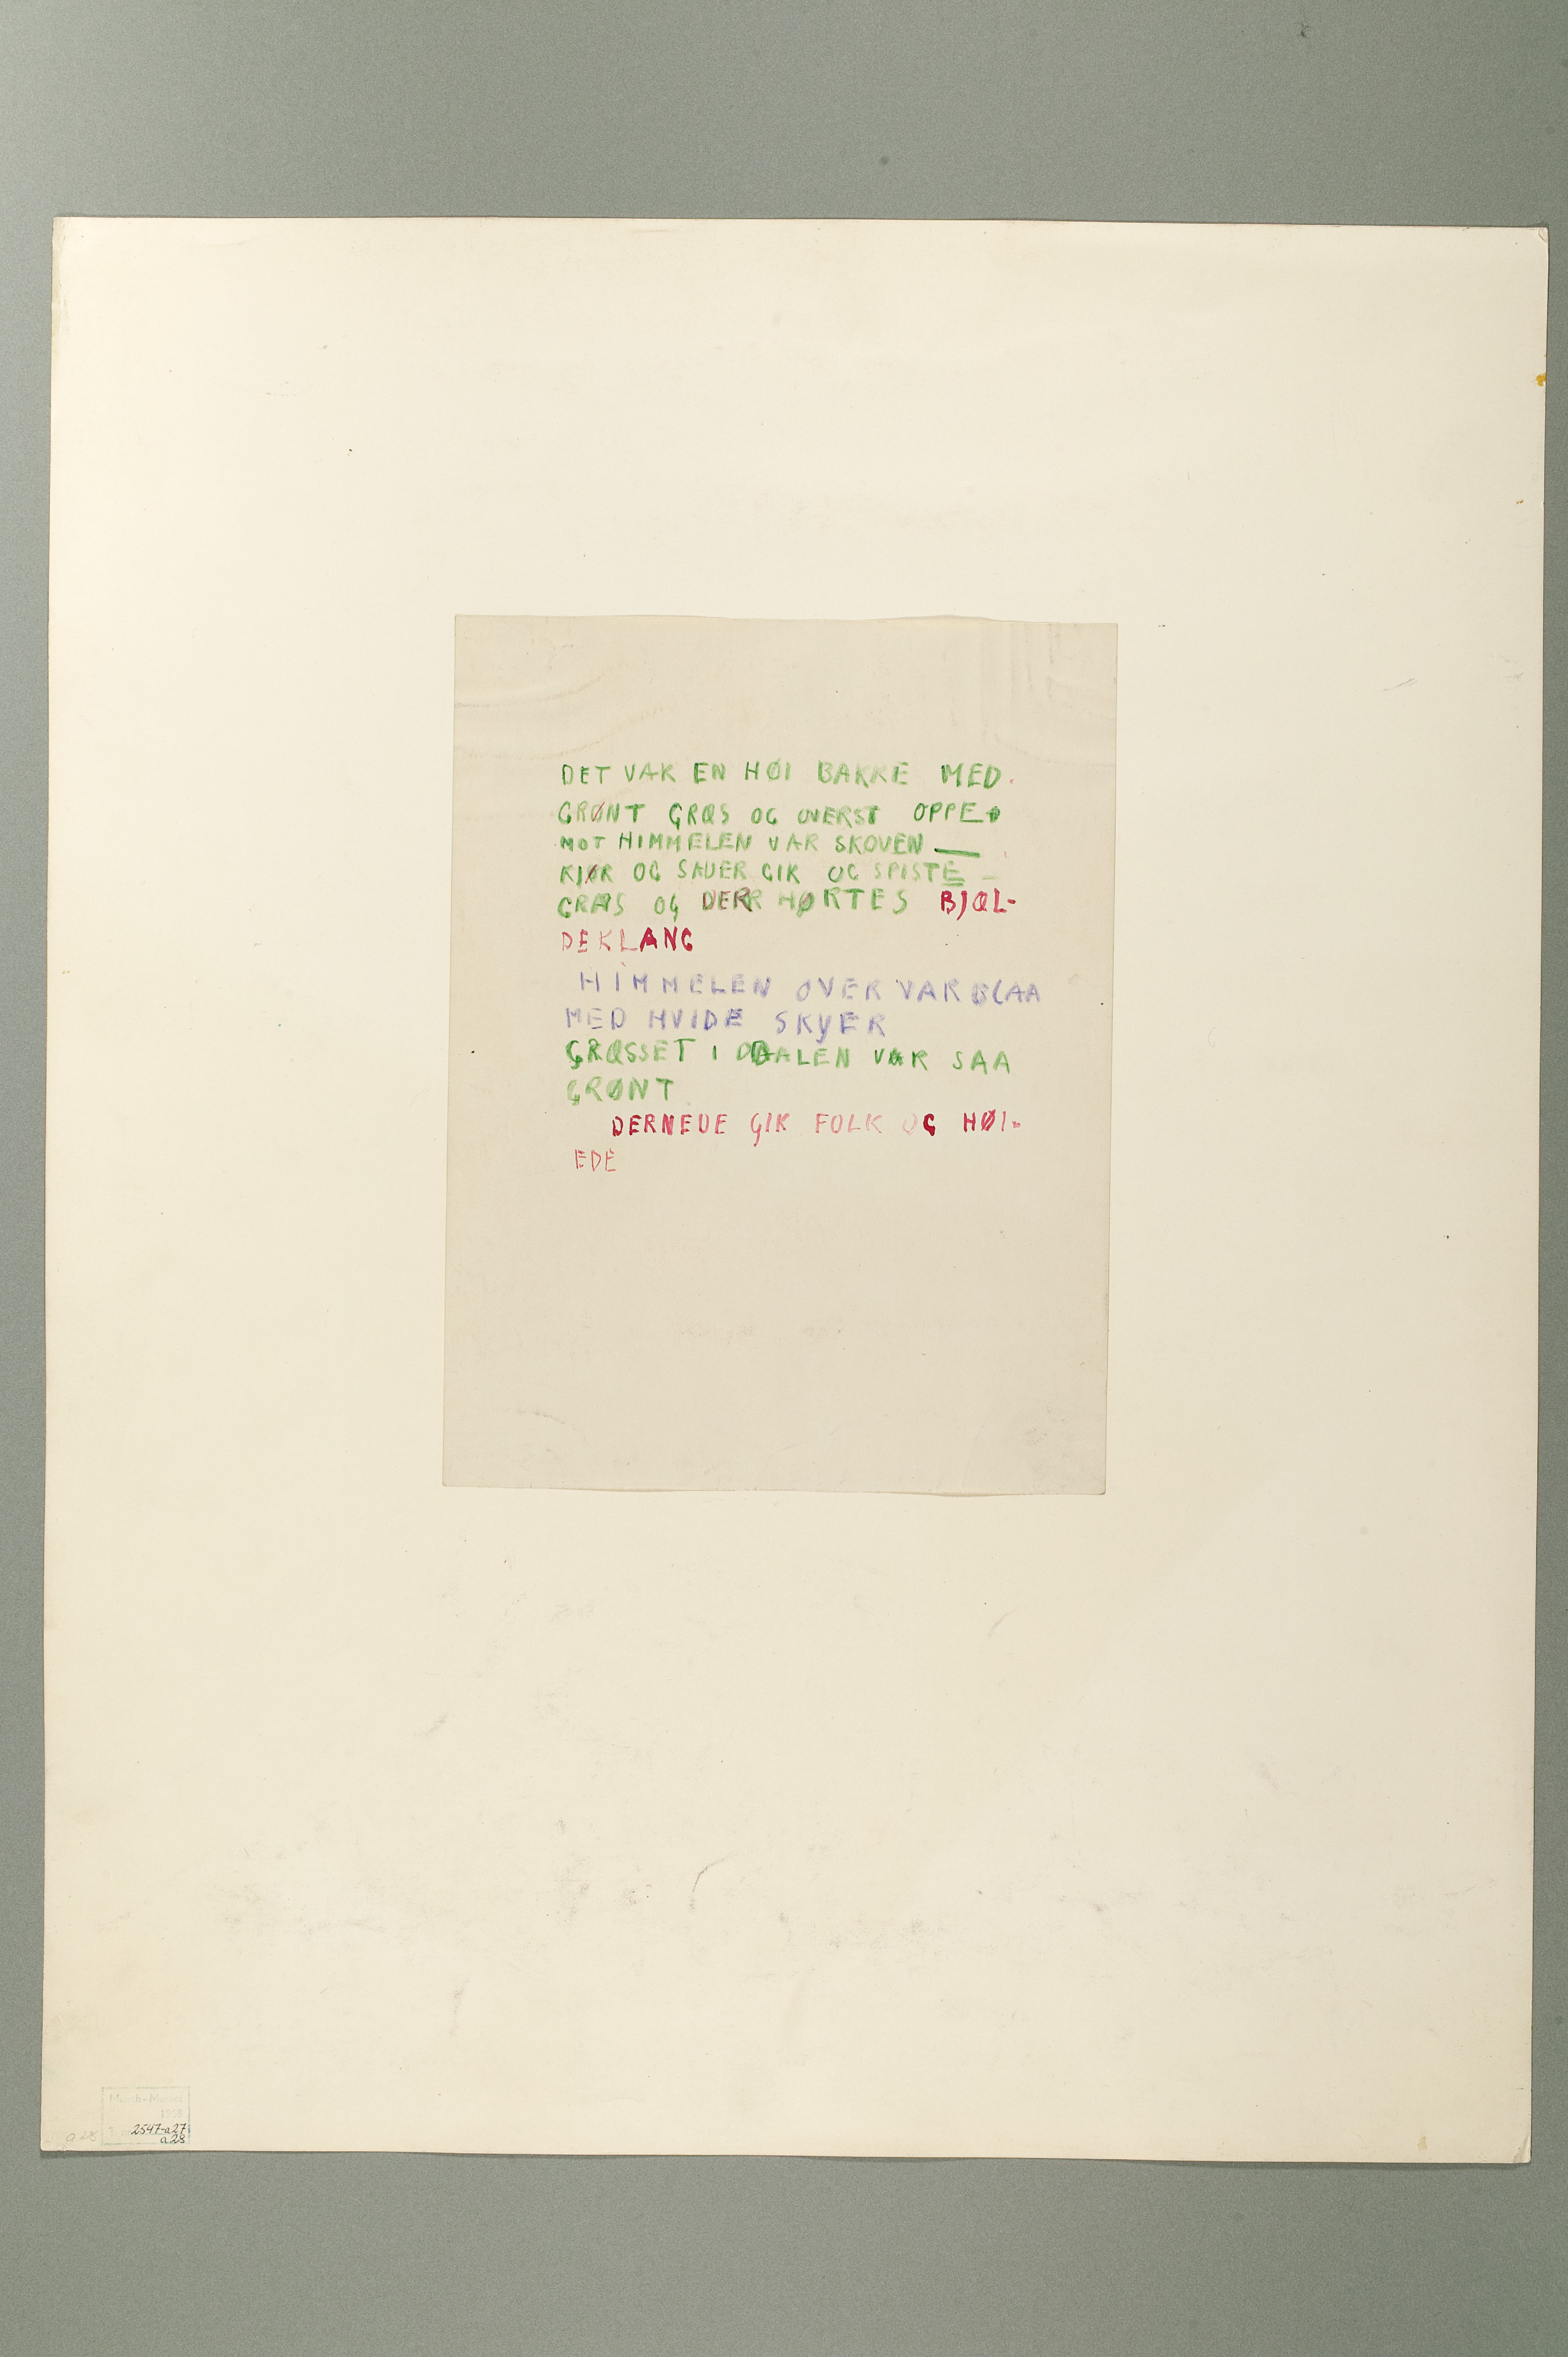 DET VAR EN HØI BAKKE MED
GRØNT GRÆS OG ØVERST OPPE
MOT HIMMELEN VAR SKOVEN —
KJØR OG SAUER GIK OG SPISTE –
GRÆS OG DER HØRTES BJÆL-
DEKLANG
HIMMELEN OVER VAR BLAA
MED HVIDE SKYER
GRÆSSET I DALEN VAR SAA
GRØNT
DERNEDE GIK FOLK OG HØI-
EDE
Munch-Museet
2547-a27
a28
a28